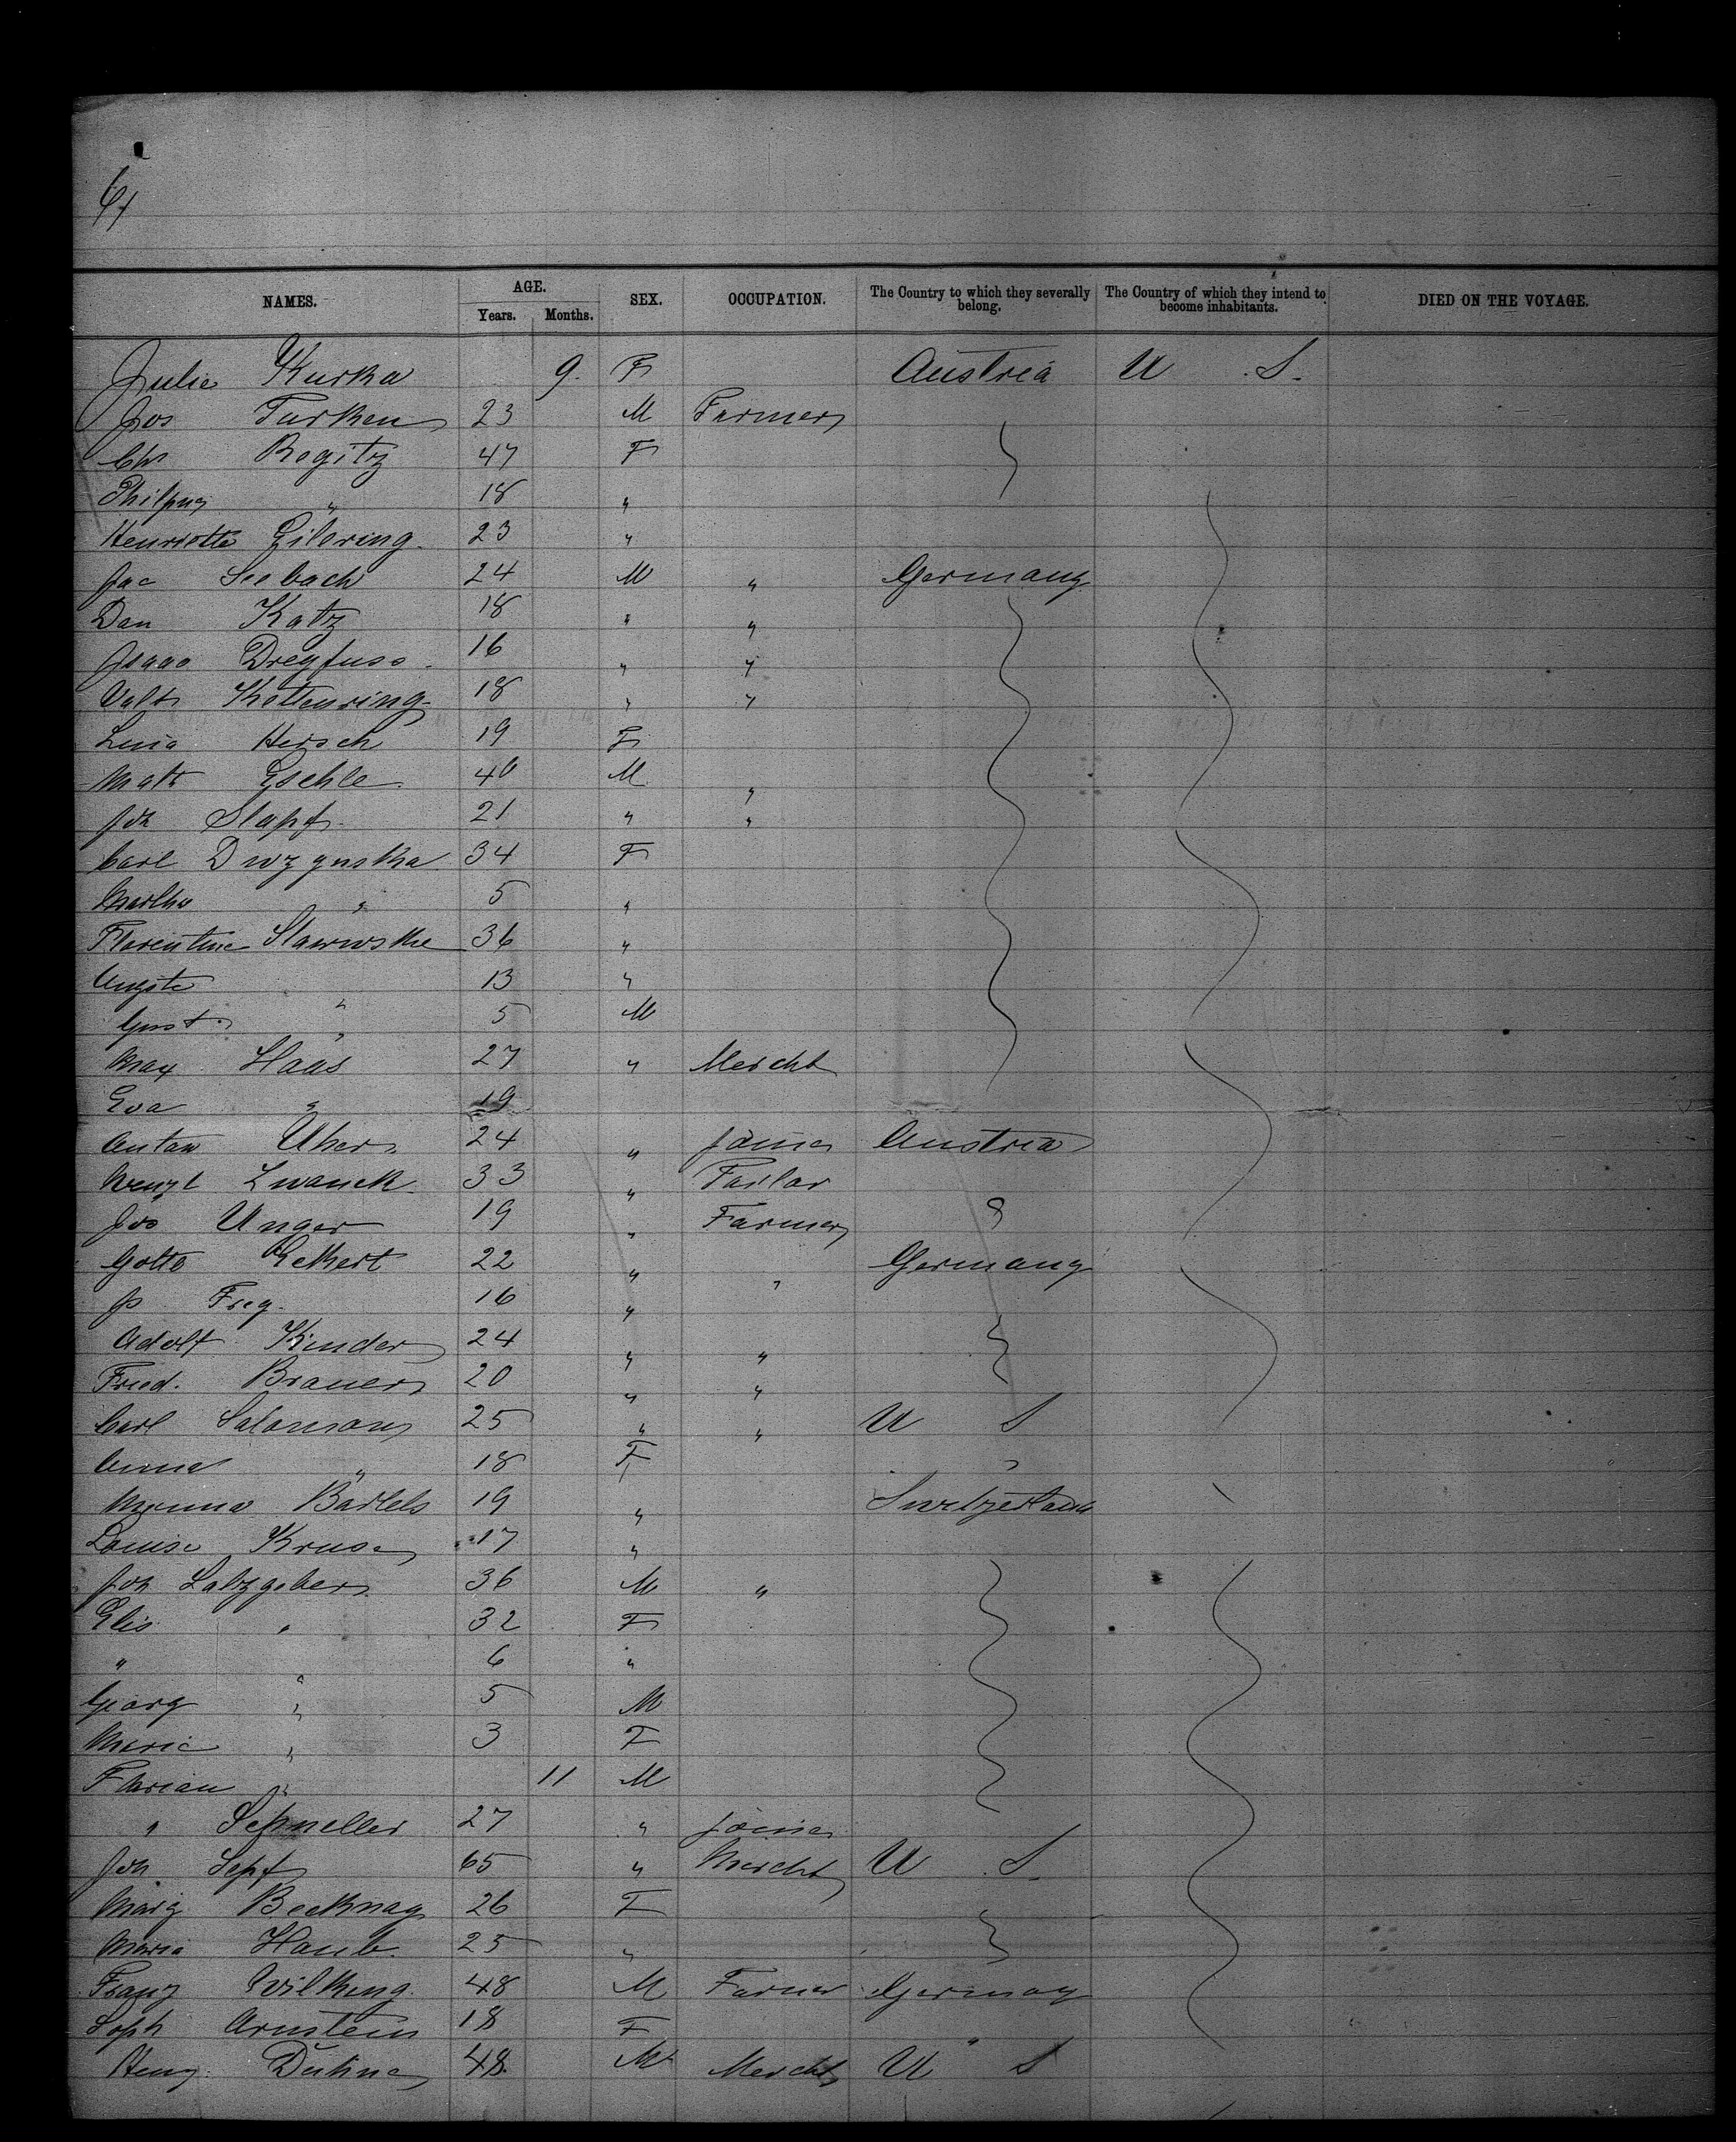 NAMES. AGE. SEX. OCCUPATION. The Country to which they severally belong. The Country of which they intend to become inhabitants. DIED ON THE VOYAGE.
Years. Months.
Julie Kurka 9. F Austria U S.
Jos Turken 23 M Farmer
Chr Rogitz 47 F
18 "
Henriette 23 "
Jac Seebach 24 M " Germany
Dan Katz 18 " "
Isaac Dreyfuss 16 " "
Valt Kettenring 18 " "
Lina Hirsch 19 F
Matt 40 M "
Joh Slapf 21 " "
Carl 34 F
Martha " 5 "
Florentine 36 "
Auguste " 13 "
Gust. " 5 M
Max Haas 27 " Mercht
Eva " 19
Anton Uher 24 " Joiner Austria
Wenzl Zwanek 33 " Tailor
Jos Unger 19 " Farmer
Gotto Eckert 22 " " Germany
Jo Frey 16 "
Adolf Kinder 24 " "
Fried. Brauer 20 " "
Carl Salomon 25 " " U S
Anna " 18 F "
Minna Bartels 19 " Switzerland
Louise Kruse 17 "
Joh Salzgeber 36 M "
Elis " 32 F
" " 6 "
Georg " 5 M
Marie " 3 F
Florian " 11 M
" Schneller 27 " Joiner
Joh Sepf 65 " Mercht U S.
Marg 26 F
Maria Haub 25 "
Franz Wilking 48 M Farmer Germany
Soph Arnstein 18 F "
Henry Duhne 48 M Mercht U S